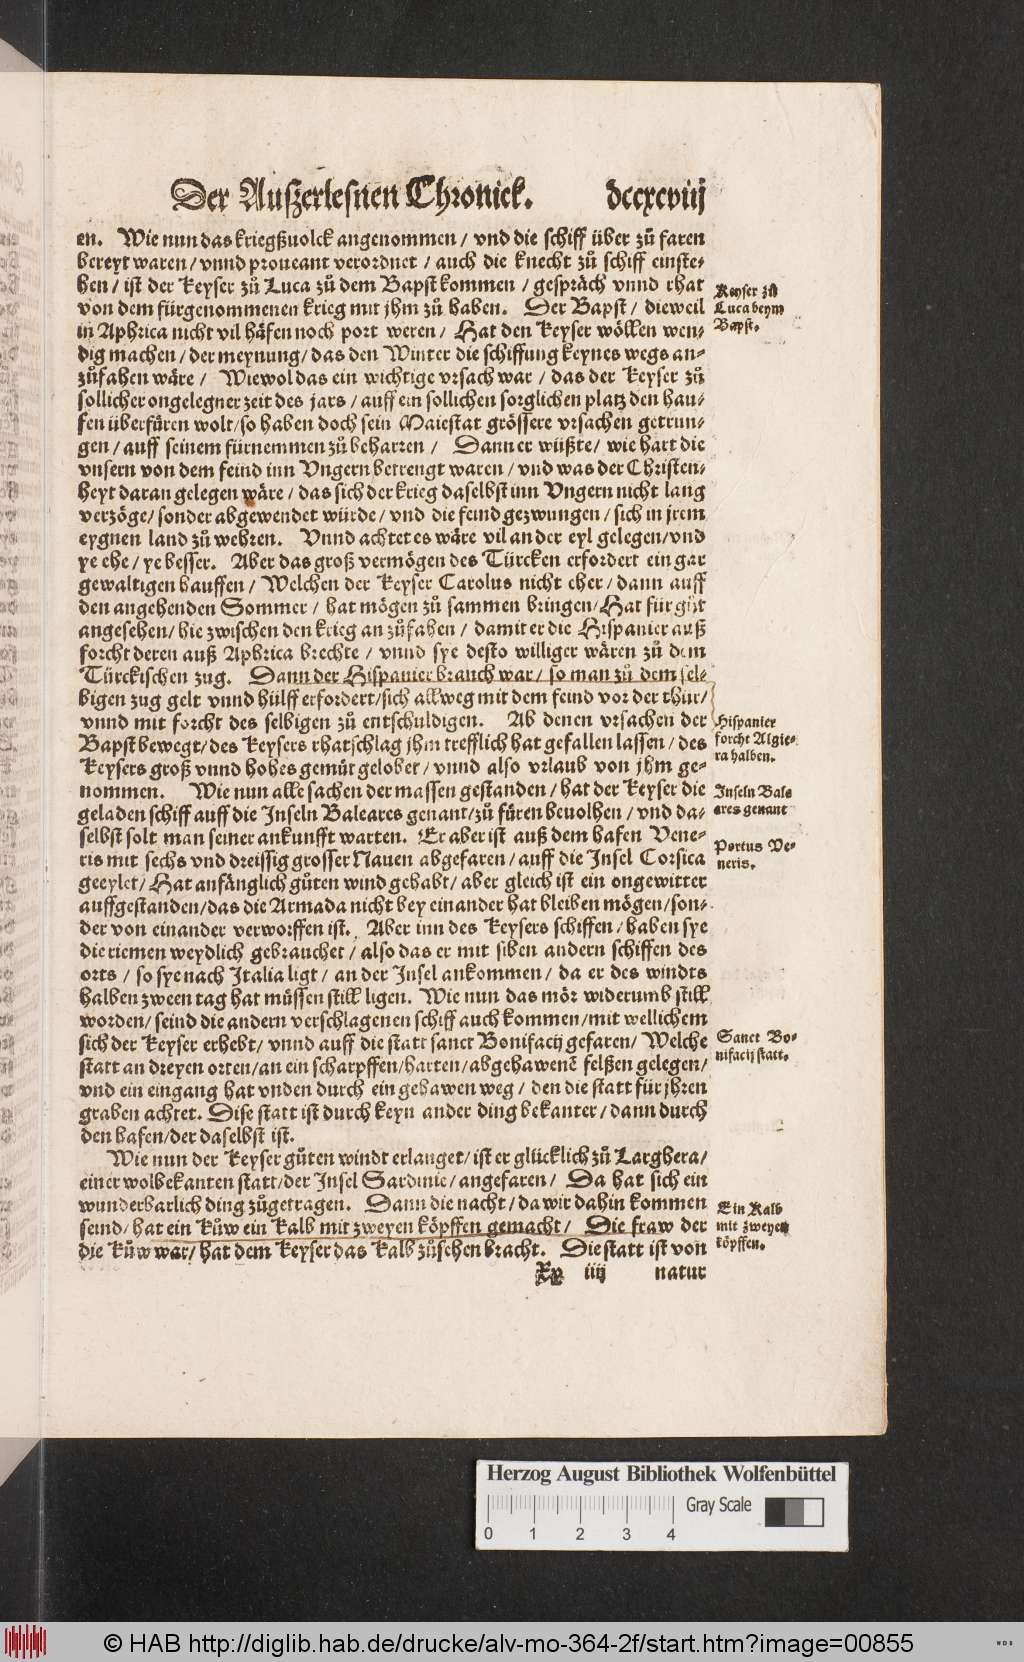 Der Außerlesnen Chronick. dccxcviij
en. Wie nun das kriegßuolck angenommen / vnd die schiff über zů faren
bereyt waren / vnnd proueant verordnet / auch die knecht zů schiff einste-
hen / ist der Keyser zů Luca zů dem Bapst kommen / gespräch vnnd rhat
von dem fürgenommenen krieg mit jhm zů haben. Der Bapst / dieweil
in Aphrica nicht vil häfen noch port weren / Hat den Keyser wöllen wen-
dig machen / der meynung / das den Winter die schiffung keynes wegs an-
zůfahen wäre / Wiewol das ein wichtige vrsach war / das der Keyser zů
sollicher ongelegner zeit des jars / auff ein sollichen sorglichen platz den hau-
fen überfüren wolt / so haben doch sein Maiestat grössere vrsachen getrun-
gen / auff seinem fürnemmen zů beharren / Dann er wüßte / wie hart die
vnsern von dem feind inn Vngern betrengt waren / vnd was der Christen-
heyt daran gelegen wäre / das sich der krieg daselbst inn Vngern nicht lang
verzöge / sonder abgewendet würde / vnd die feind gezwungen / sich in jrem
eygnen land zů wehren. Vnnd achtet es wäre vil an der eyl gelegen / vnd
ye ehe / ye besser. Aber das groß vermögen des Türcken erfordert ein gar
gewaltigen hauffen / Welchen der Keyser Carolus nicht eher / dann auff
den angehenden Sommer / hat mögen zů sammen bringen / Hat für gůt
angesehen / hie zwischen den krieg an zůfahen / damit er die Hispanier auß
forcht deren auß Aphrica brechte / vnnd sye desto williger wären zů dem
Türckischen zug. Dann der Hispanier brauch war / so man zů dem sel-
bigen zug gelt vnnd hülff erfordert / sich allweg mit dem feind vor der thür /
vnnd mit forcht des selbigen zů entschuldigen. Ab denen vrsachen der
Bapst bewegt / des Keysers rhatschlag jhm trefflich hat gefallen lassen / des
Keysers groß vnnd hohes gemüt gelobet / vnnd also vrlaub von jhm ge-
nommen. Wie nun alle sachen der massen gestanden / hat der Keyser die
geladen schiff auff die Inseln Baleares genant / zů füren beuolhen / vnd da-
selbst solt man seiner ankunfft warten. Er aber ist auß dem hafen Vene-
ris mit sechs vnd dreissig grosser Nauen abgefaren / auff die Insel Corsica
geeylet / Hat anfänglich gůten wind gehabt / aber gleich ist ein ongewitter
auffgestanden / das die Armada nicht bey einander hat bleiben mögen / son-
der von einander verworffen ist. Aber inn des Keysers schiffen / haben sye
die riemen weydlich gebrauchet / also das er mit siben andern schiffen des
orts / so sye nach Italia ligt / an der Insel ankommen / da er des windts
halben zween tag hat müssen still ligen. Wie nun das mör widerumb still
worden / seind die andern verschlagenen schiff auch kommen / mit wellichem
sich der Keyser erhebt / vnnd auff die statt sanct Bonifacij gefaren / Welche
statt an dreyen orten / an ein scharpffen / harten / abgehawenē felßen gelegen /
vnd ein eingang hat vnden durch ein gehawen weg / den die statt für jhren
graben achtet. Dise statt ist durch keyn ander ding bekanter / dann durch
den hafen / der daselbst ist.
Wie nun der Keyser gůten windt erlanget / ist er glücklich zů Larghera /
einer wolbekanten statt / der Insel Sardinie / angefaren / Da hat sich ein
wunderbarlich ding zůgetragen. Dann die nacht / da wir dahin kommen
seind / hat ein Kůw ein Kalb mit zweyen köpffen gemacht / Die fraw der
die Kůw war / hat dem Keyser das Kalb zůsehen bracht. Die statt ist von
Xx iiij natur
Keyser zů
Luca beym
Bapst.
Hispanier
forcht Algie-
ra halben.
Inseln Bale
ares genant
Portus Ve-
neris.
Sanct Bo-
nifacij statt.
Ein Kalb
mit zweyen
köpffen.
Herzog August Bibliothek Wolfenbüttel
Gray Scale
0 1 2 3 4
© HAB http://diglib.hab.de/drucke/alv-mo-364-2f/start.htm?image=00855